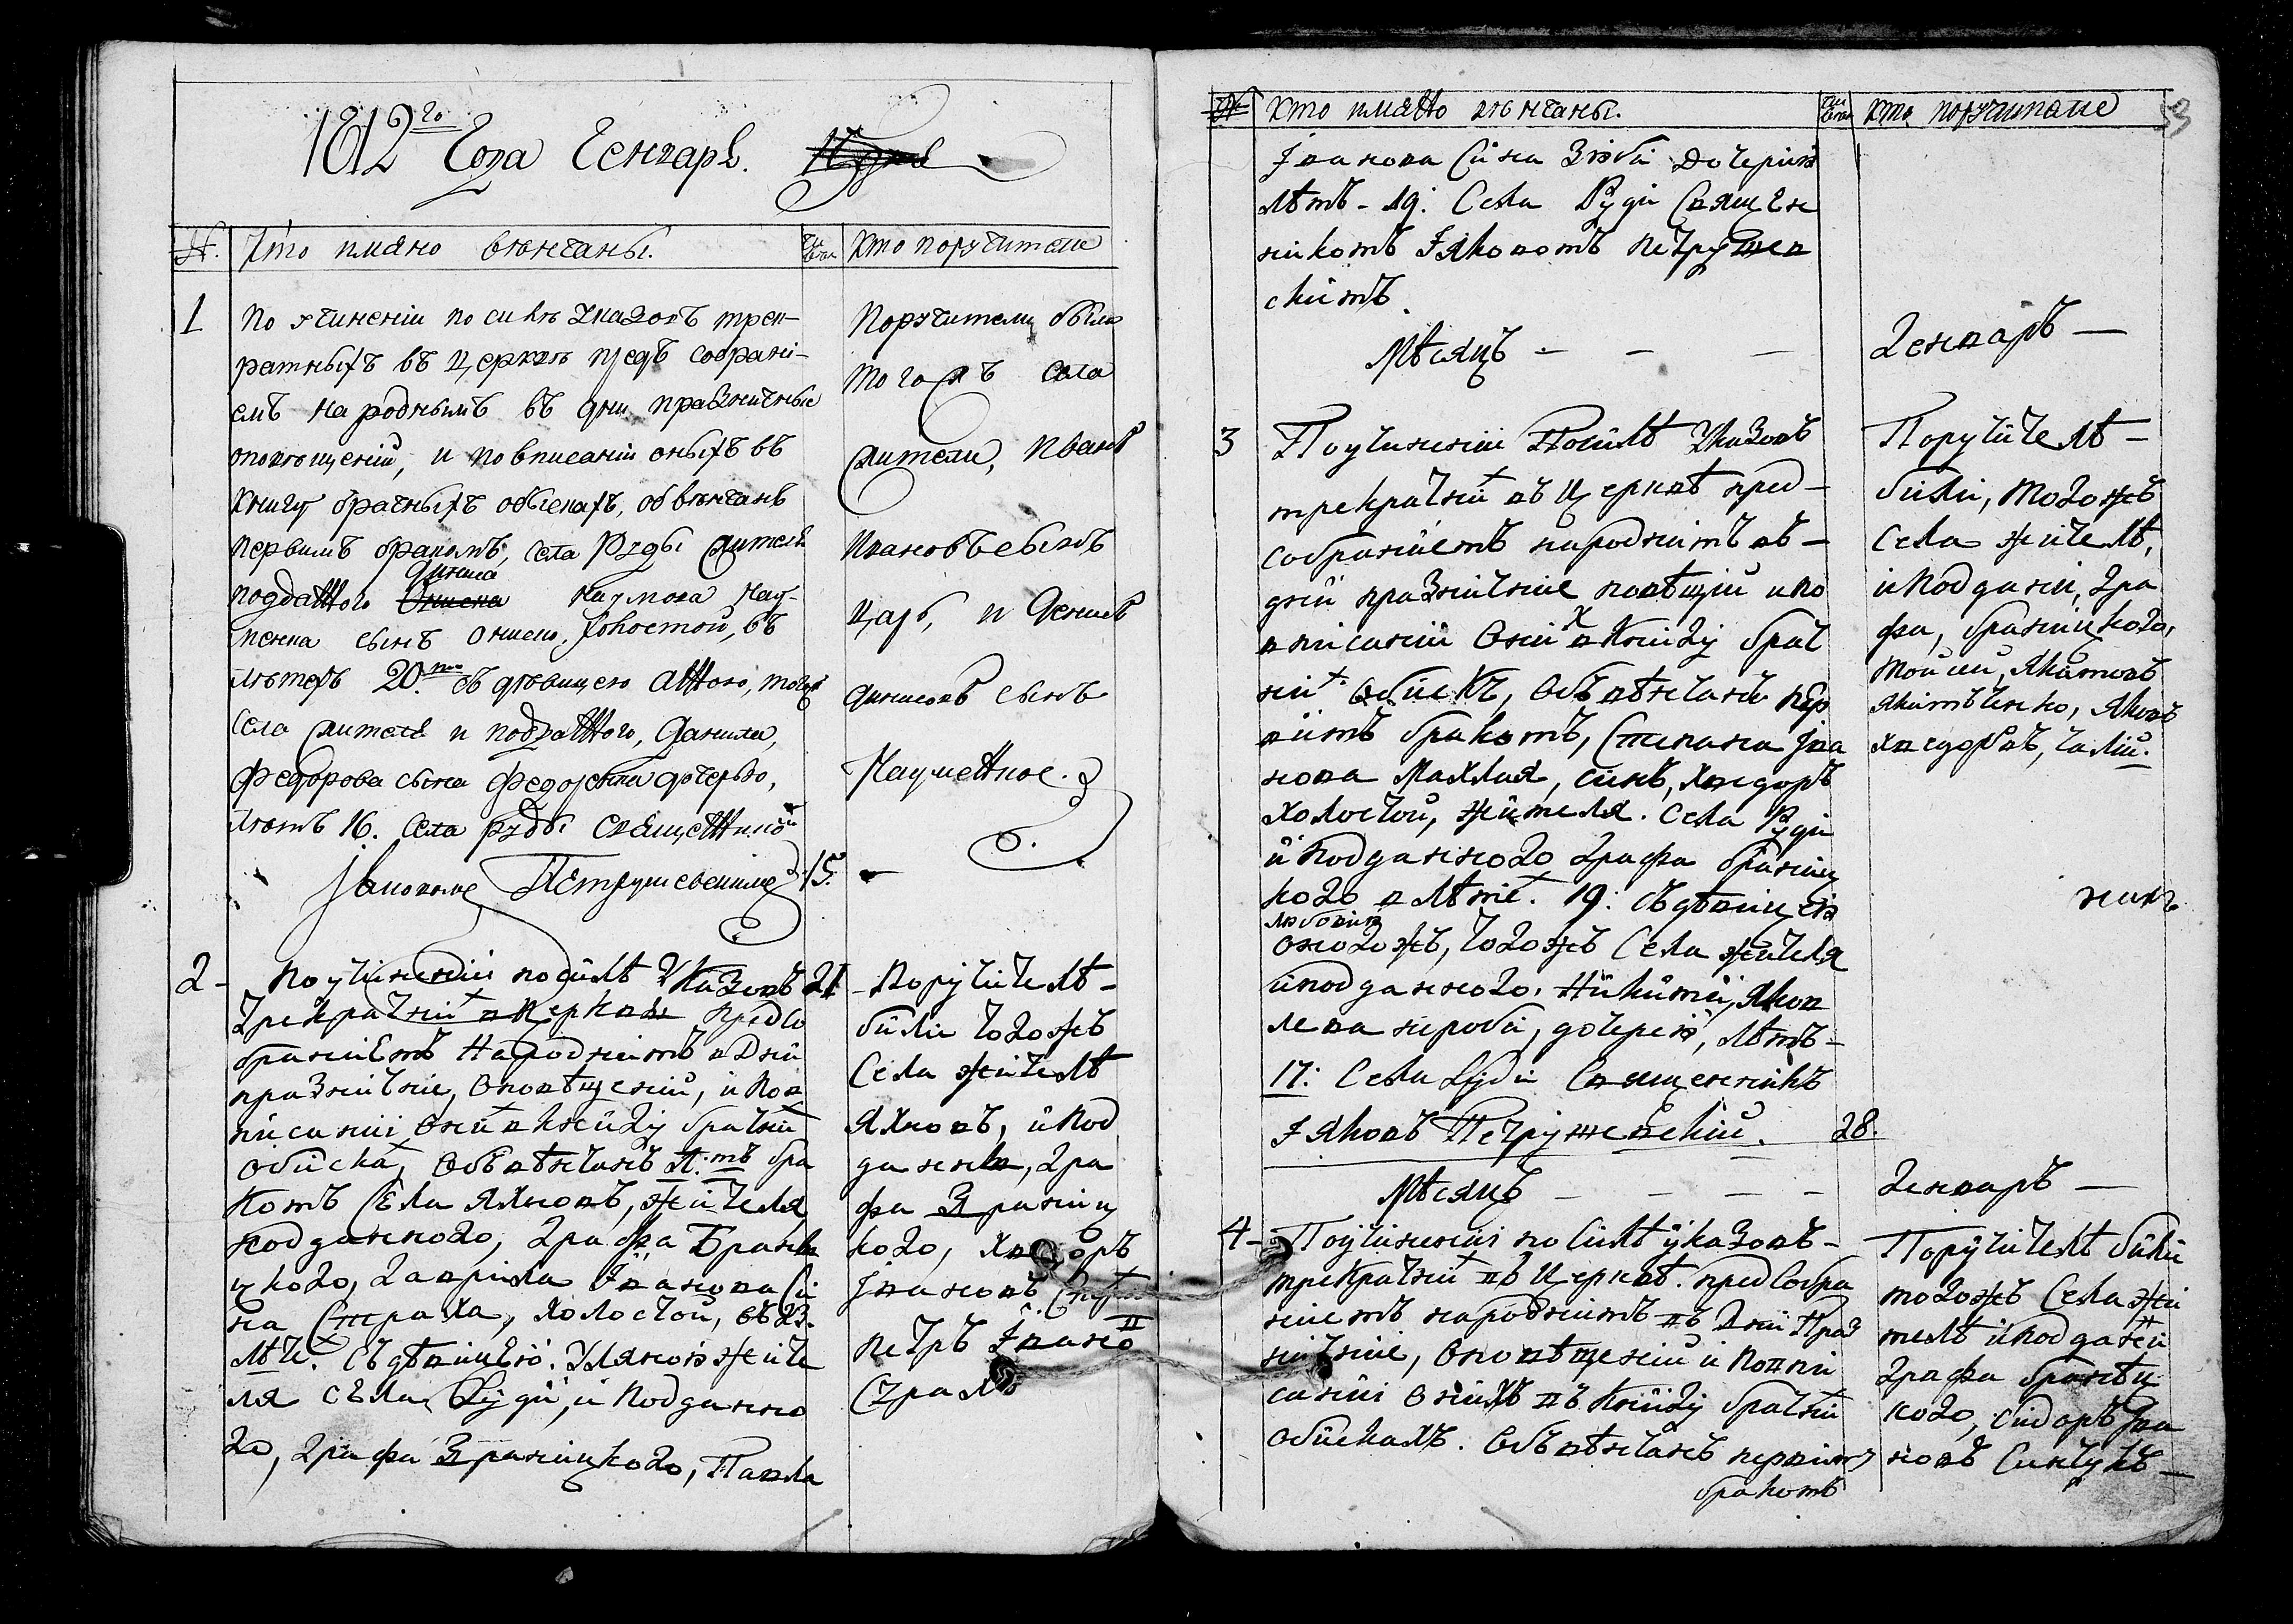 1812го Года Генваръ.
№. Кто имяно венчаны. Кто поручители
1 По учинении по силѣ указовъ трек-
ратныхъ въ церкви предъ собрані-
емъ народнымъ въ дни праздничные
оповѣщеній, и по вписаніи оныхъ въ
книгу брачныхъ обысковъ, обвѣнчанъ
первымъ бракомъ, села Руды житель
подданного Онисима Наумова Нау-
менка сынъ холостой, въ
лѣтехъ 20.ти съ дѣвицею Анною, тогожъ
села жителя и подданного, Данила,
Федорова сына Федоренка дочерью,
лѣтъ 16. села Руды священникомъ
Іаковомъ Петрушевскимъ 15.
Поручители были
тогожъ села
жители, Иванъ
Ивановъ сынъ
и Денисъ
сынъ
Науменкое.
2 - По учиненіи по силѣ Указовъ 21
трекратних в церкви предсо
браниемъ народнимъ в дни
празничние, оповѣщений, и по в
писании оних в книгу братних
обиска, обвѣнчанъ П.мъ бра
комъ села Яхновъ, жителя
подданного, графа Брани
цкого, Гаврила Іванова си
на Страха, холостой, въ 23.
лѣте. съ дѣвицею. Уляною жите
ля села Руди, и подданно
го, графа Браницкого, Павла
- Поручителѣ -
били тогожъ
села жителѣ
Яхновъ, и под
дание, гра
фа Браниц
кого, Хведоръ
Івановъ
Петръ Івано
Страхъ
№ Кто имянно венчаны. Кто поручители 59
Іванова сина Зюби дочерию
лѣтъ - 19: села Руди священ
никомъ Іяковомъ Петрушев
скимъ.
Мѣсяцъ - - - Генваръ -
3 По учинении по силѣ Указовъ
трекратних въ церквѣ пред -
собраниемъ народнимъ въ -
дни празничние повѣщий и по
вписании оних в книгу брат
них обискъ, обвѣнчани пер
вимъ бракомъ, Степана Іва
нова Махлая, синъ, Хведоръ
холостой, жителя. села Руди
и подданного графа Браниц
кого в лѣте. 19: съ дѣвицею
Любовию
оногожъ, тогожъ села жителя
и подданного. Никити, Яков
лева дочерею, лѣтъ -
17: села Руди священникъ
Іяковъ Петрушевский. 28.
Поручителѣ -
били, тогожъ
села жителѣ,
и поддани, гра
фа, браницкого,
Якимовъ
Якимъченко, Яковъ
Хведоровъ,
Мѣсяцъ - - - - Генваръ -
4 - По учинении по силѣ указовъ -
трекратних въ церквѣ. пред собра
ниемъ народнимъ въ дни праз
ничние, оповѣщений и по впи
сании онихъ въ книгу братних
обискахъ. обвѣнчанъ первимъ
бракомъ
Поручителѣ били
тогожъ села жи
телѣ и поддани
графа браниц
кого, Сидоръ Іва
новъ